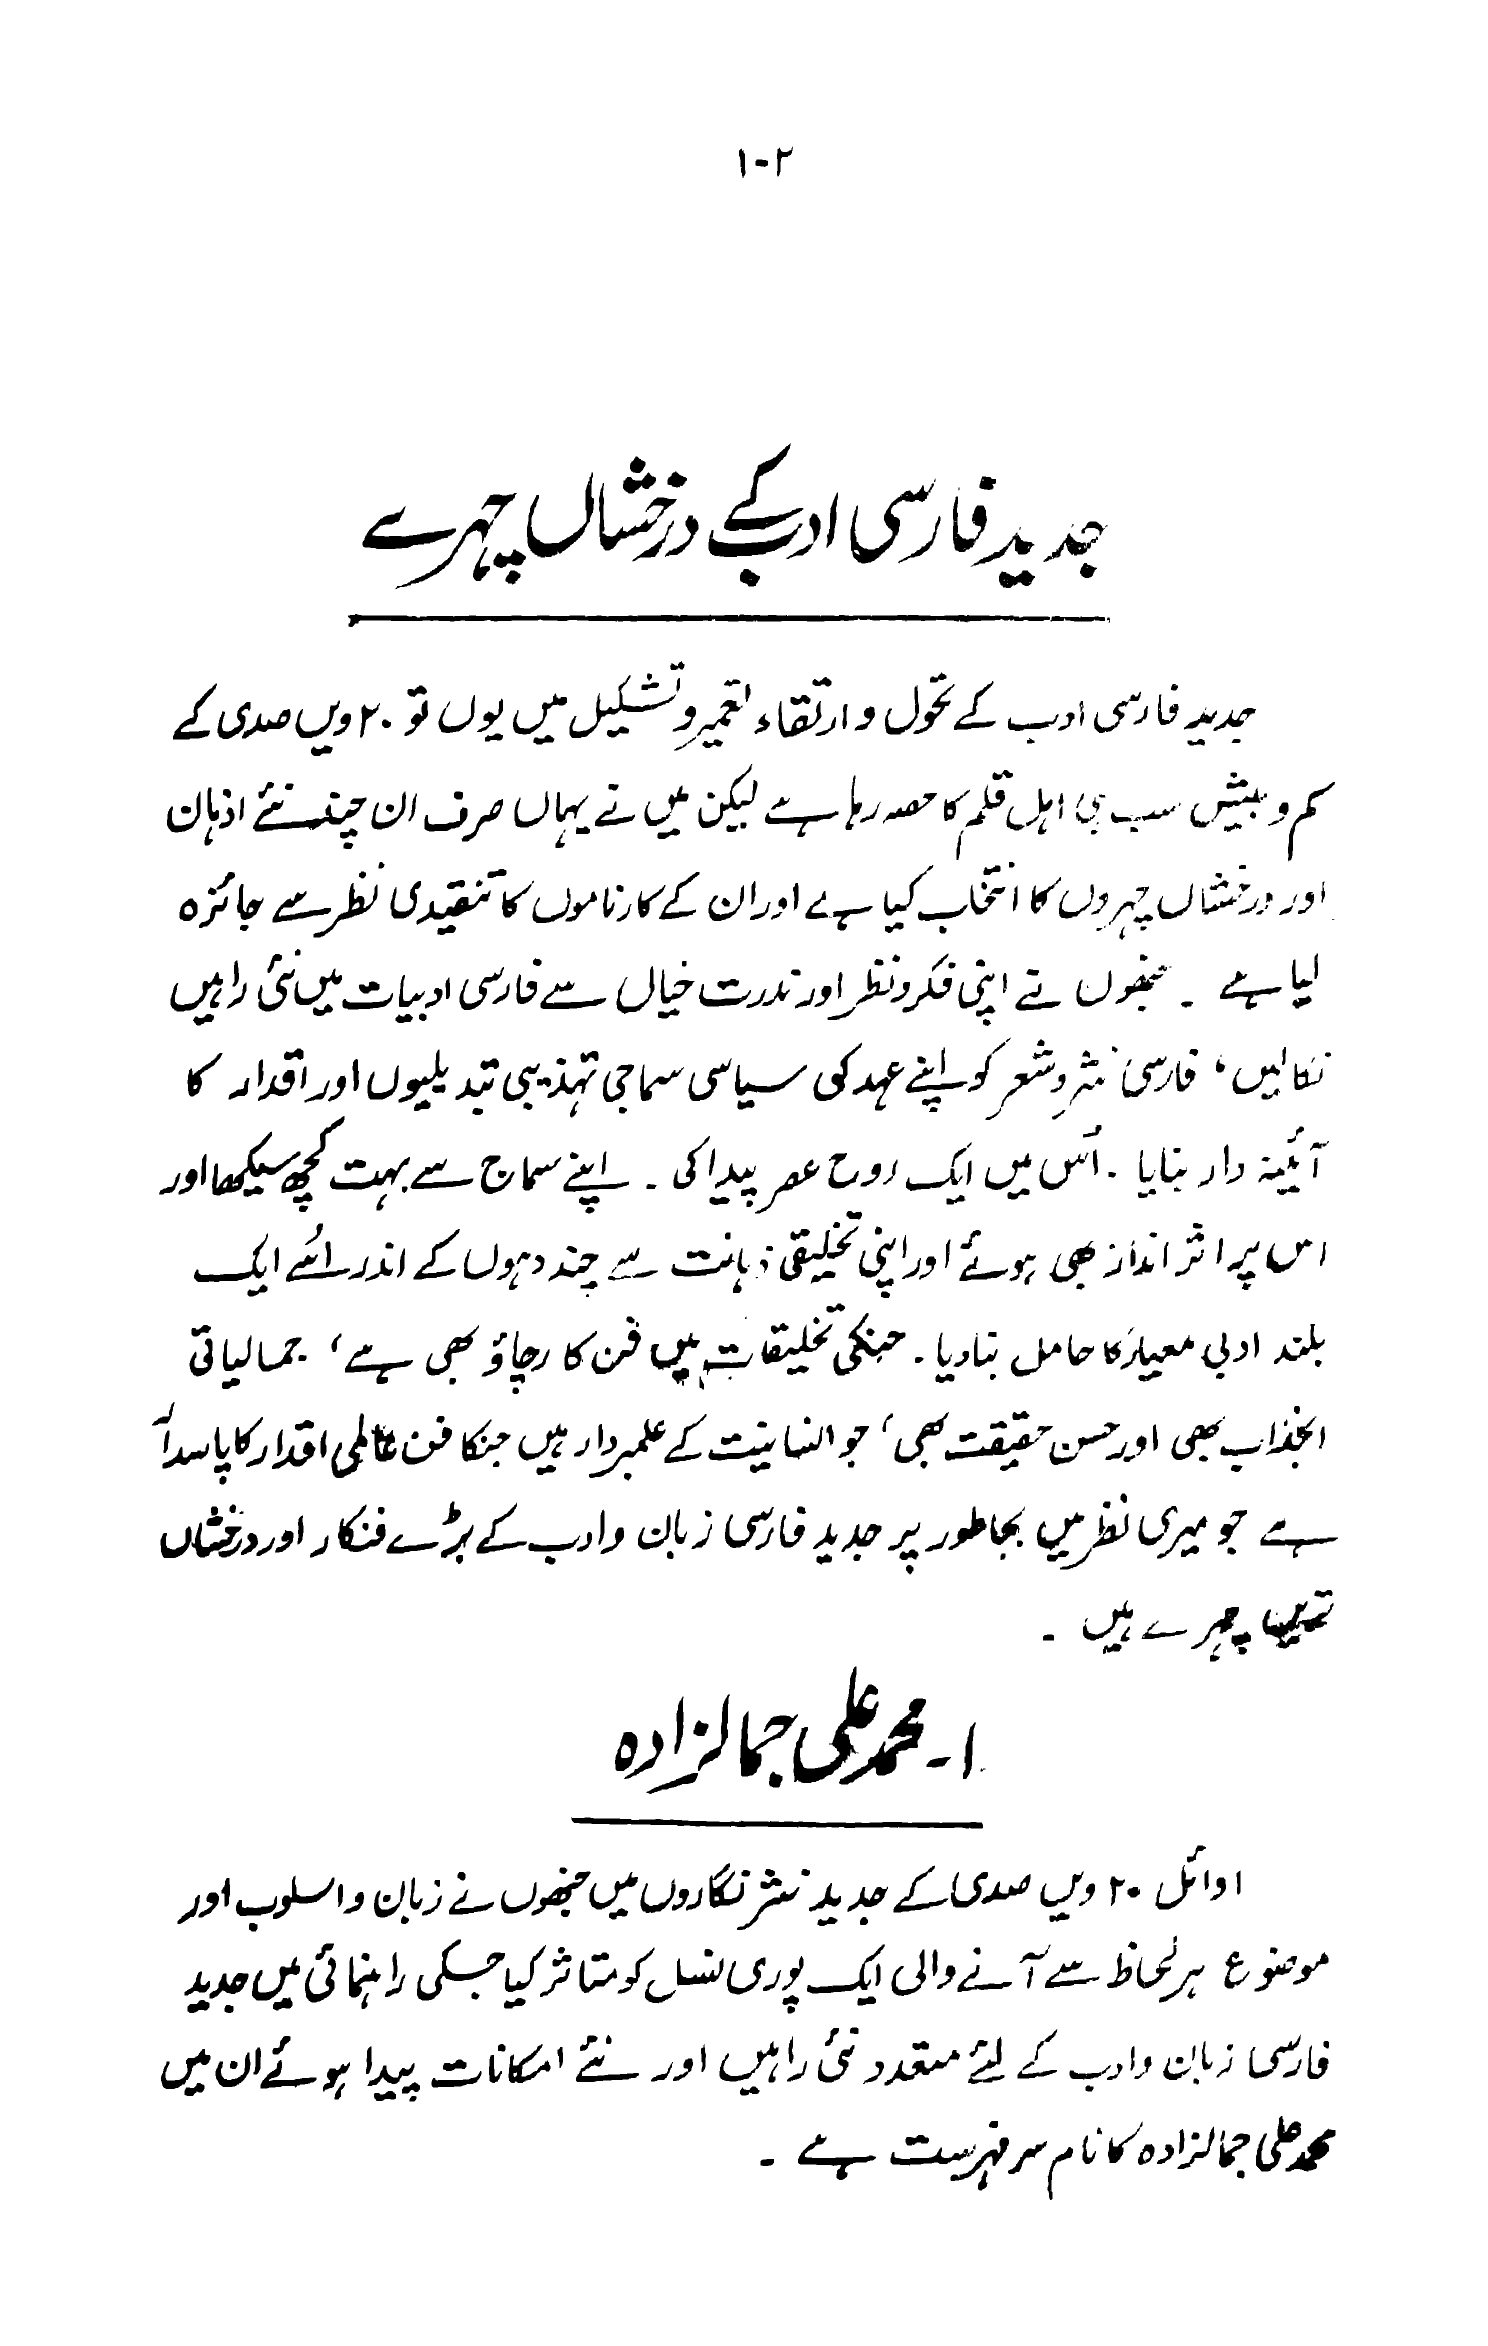 ۱۰۲
جدید فارسی ادب کے درخشاں چہرے
جدید فارسی ادب کے تحول و ارتقاء تعمیر و تشکیل میں یوں تو ۲۰ ویں صدی کے
کم و بیش سب ہی اہل قلم کا حصہ رہا ہے لیکن میں نے یہاں صرف ان چند نئے اذہان
اور درخشاں چہروں کا انتخاب کیا ہے اور ان کے کارناموں کا تنقیدی نظر سے جائزہ
لیا ہے ۔ جنھوں نے اپنی فکر و نظر اور ندرت خیال سے فارسی ادبیات میں نئی راہیں
نکالیں، فارسی نثر و شعر کو اپنے عہد کی سیاسی سماجی تہذیبی تبدیلیوں اور اقدار کا
آئینہ دار بنایا ۔ اُس میں ایک روح عصر پیدا کی ۔ اپنے سماج سے بہت کچھ سیکھا اور
اس پر اثر انداز بھی ہوئے اور اپنی تخلیقی ذہانت سے چند دہوں کے اندر اُسے ایک
بلند ادبی معیار کا حامل بنا دیا ۔ جنکی تخلیقات میں فن کا رچاؤ بھی ہے، جمالیاتی
انجذاب بھی اور حسن حقیقت بھی، جو انسانیت کے علمبردار ہیں جنکا فن عالمی اقدار کا پاسدار
ہے جو میری نظر میں بجا طور پر جدید فارسی زبان و ادب کے بڑے فنکار اور درخشاں
ترین چہرے ہیں ۔
۱۔ محمد علی جمالزادہ
اوائل ۲۰ ویں صدی کے جدید نثر نگاروں میں جنھوں نے زبان و اسلوب اور
موضوع ہر لحاظ سے آنے والی ایک پوری نسل کو متاثر کیا جسکی راہنمائی میں جدید
فارسی زبان و ادب کے لئے متعدد نئی راہیں اور نئے امکانات پیدا ہوئے ان میں
محمد علی جمالزادہ کا نام سر فہرست ہے ۔